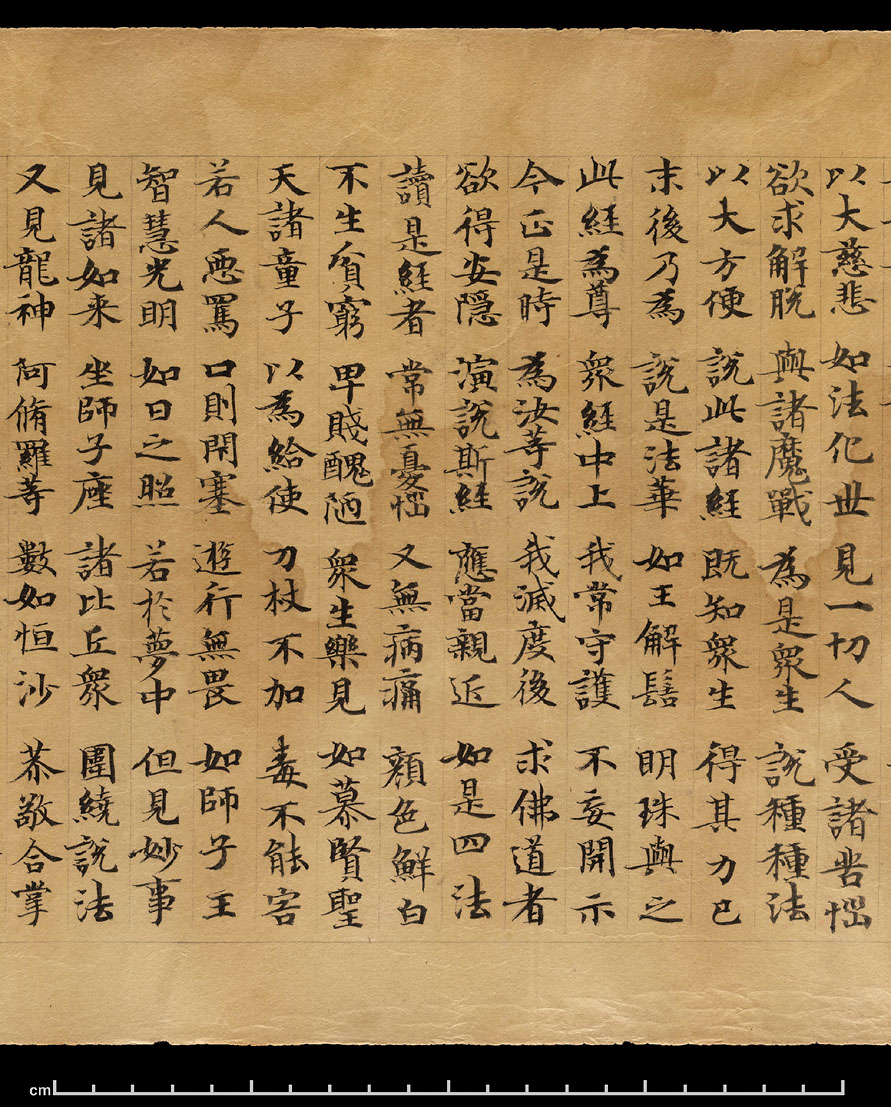 以大慈悲 如法化世 見一切人 受諸苦惱
欲求解脫 與諸魔戰 為是衆生 說種種法
以大方便 說此諸經 既知衆生 得其力已
末後乃為 說是法華 如王解髻 明珠與之
此經為尊 衆經中上 我常守護 不妄開示
今正是時 為汝等說 我滅度後 求佛道者
欲得安隱 演說斯經 應當親近 如是四法
讀是經者 常無憂惱 又無病痛 顏色鮮白
不生貧窮 卑賤醜陋 衆生樂見 如慕賢聖
天諸童子 以為給使 刀杖不加 毒不能害
若人惡罵 口則閉塞 遊行無畏 如師子王
智慧光明 如日之照 若於夢中 但見妙事
見諸如来 坐師子座 諸比丘衆 圍繞說法
又見龍神 阿脩羅等 數如恒沙 恭敬合掌
cm